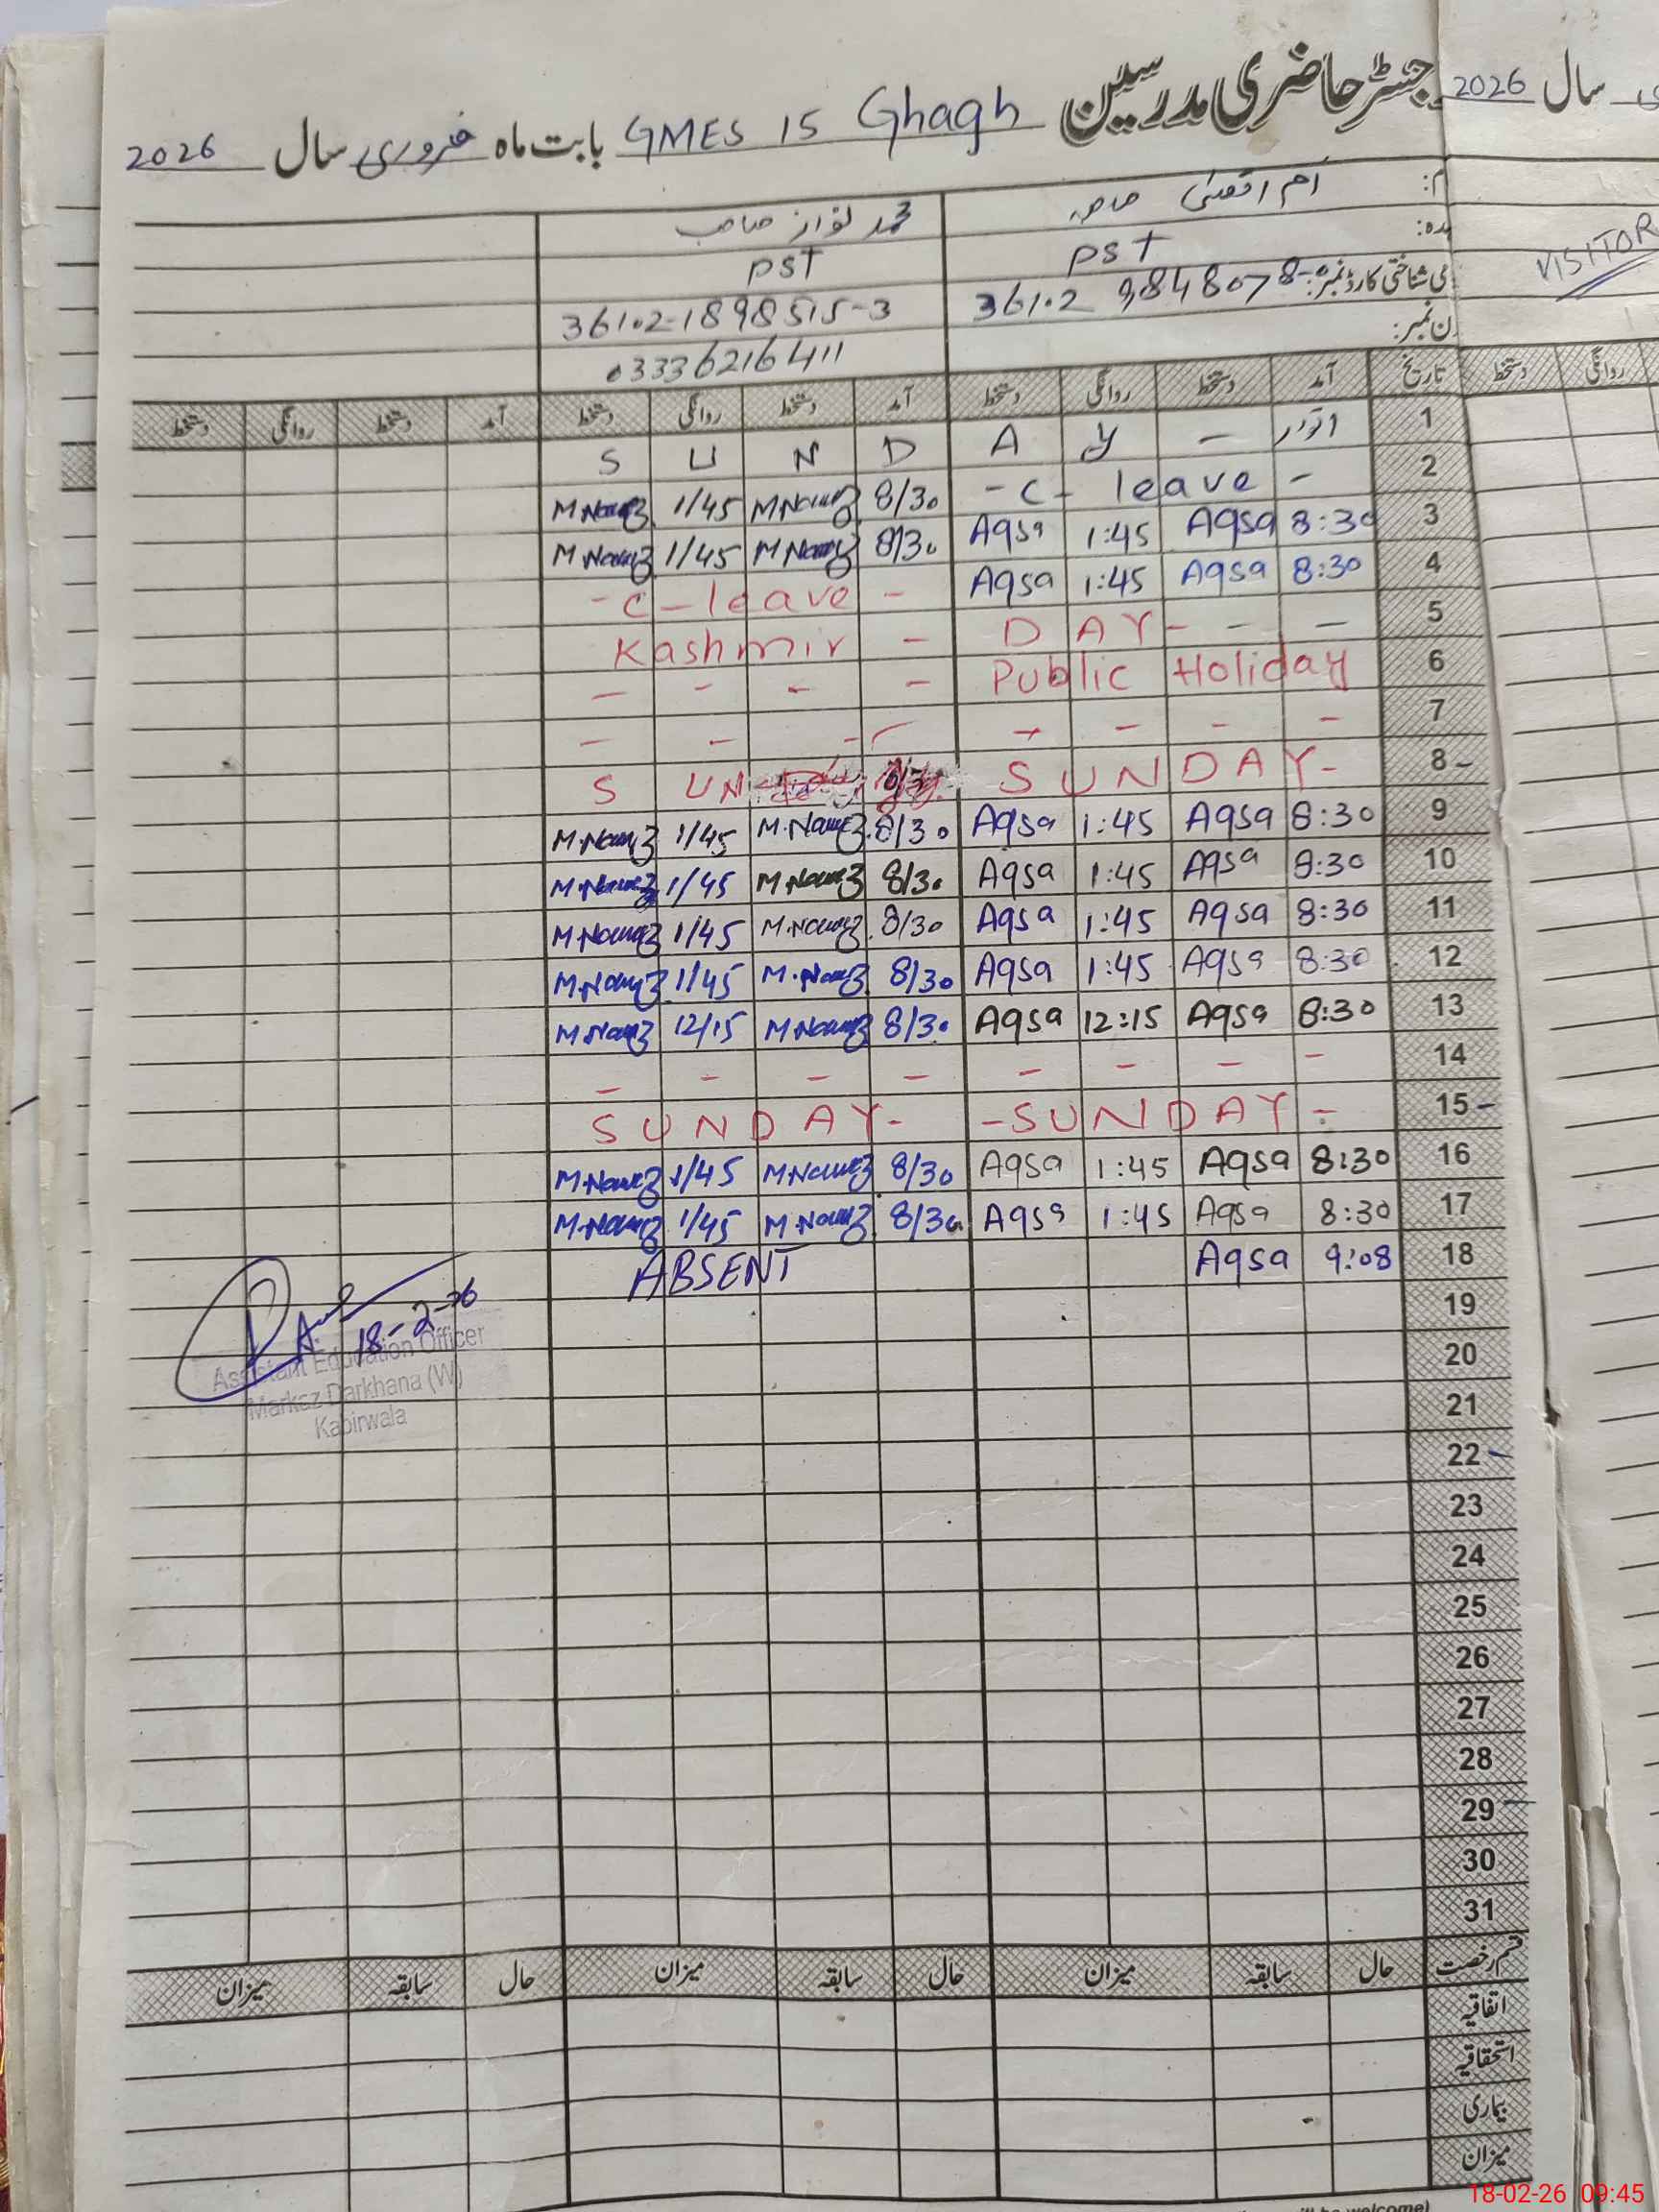 جسٹر حاضری مدرسین GMES 15 Ghagh بابت ماہ فروری سال 2026
2026 سال
VISITOR
ام اقصیٰ صاحبہ محمد نواز صاحب
PST PST
شناختی کارڈ نمبر: 36102 9848078- 36102-1898515-3
ن نمبر: 03336216411
تاریخ آمد دستخط روانگی دستخط آمد دستخط روانگی دستخط آمد دستخط روانگی دستخط
روانگی دستخط
S U N D A Y — اتوار 1
M Nawaz 1/45 M Nawaz 8/30 - C - leave - 2
M Nawaz 1/45 M Nawaz 8/30 Aqsa 1:45 Aqsa 8:30 3
- C - leave - Aqsa 1:45 Aqsa 8:30 4
Kashmir - DAY - - - 5
- - - - Public Holiday 6
- - - - - - - - 7
S U N SUNDAY- 8-
M.Nawaz 1/45 M.Nawaz 8/30 Aqsa 1:45 Aqsa 8:30 9
M.Nawaz 1/45 M Nawaz 8/30 Aqsa 1:45 Aqsa 8:30 10
M.Nawaz 1/45 M.Nawaz 8/30 Aqsa 1:45 Aqsa 8:30 11
M.Nawaz 1/45 M.Nawaz 8/30 Aqsa 1:45 Aqsa 8:30 12
M.Nawaz 12/15 M.Nawaz 8/30 Aqsa 12:15 Aqsa 8:30 13
- - - - - - - - 14
SUNDAY- -SUNDAY- 15-
M.Nawaz 1/45 M.Nawaz 8/30 Aqsa 1:45 Aqsa 8:30 16
M.Nawaz 1/45 M.Nawaz 8/30 Aqsa 1:45 Aqsa 8:30 17
ABSENT Aqsa 9:08 18
18-2-26
Assistant Education Officer
Markaz Darkhana (W)
Kabirwala
19
20
21
22-
23
24
25
26
27
28
29
30
31
قسم رخصت حال سابقہ میزان حال سابقہ میزان حال سابقہ میزان
اتفاقیہ
استحقاقیہ
بیماری
میزان
be welcome)
18-02-26 09:45